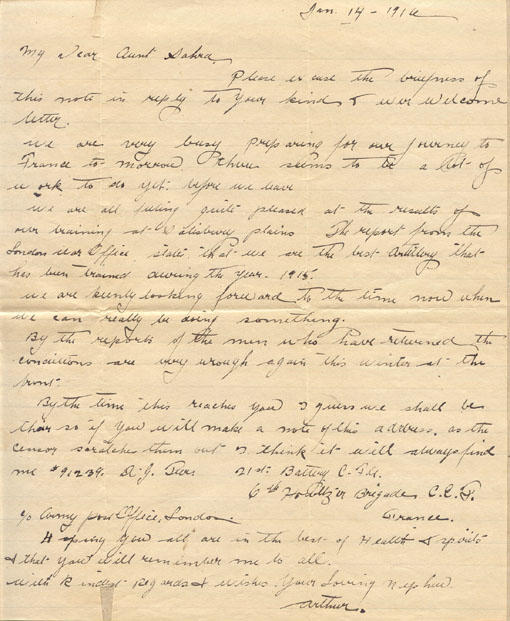 Jan. 14 - 1916
My Dear Aunt Sahra
Please excuse the briefness of
this note in reply to your kind & ever welcome
letter.
We are very busy preparing for our journey to
France to-morrow there seems to be a lot of
work to do yet before we leave
We are all feeling quite pleased at the results of
our training at Salesbury plains The report from the
London War Office states that we are the best Artillery that
has been trained during the year. 1915.
We are keenly looking forward to the time now when
we can really be doing something.
By the reports of the men who have returned the
conditions are very rough again this winter at the
front.
By the time this reaches you I guess we shall be
there so if you will make a note of this address, as the
censor scratches them out I think it will always find
me #91239. A.J. 21st Battery C.F.A.
6th Howitzer Brigade C.E.F.
c/o Army post Office. London. France.
Hoping you all are in the best of Health & spirits
& that you will remember me to all.
with kindest Regards & wishes. Your Loving Nephew
Arthur.